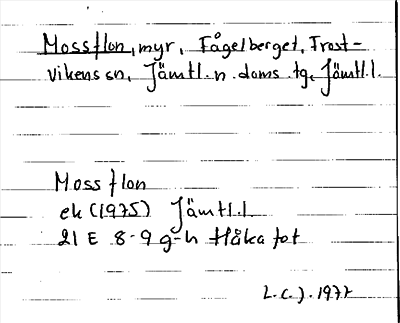 Mossflon, myr, Fågelberget, Frost-
vikens sn, Jämtl. n. doms. tg, Jämtl.l.
Mossflon
ek (1975) Jämtl.l.
21 E 8-9 g-h Håkafot
L.C.J. 1977